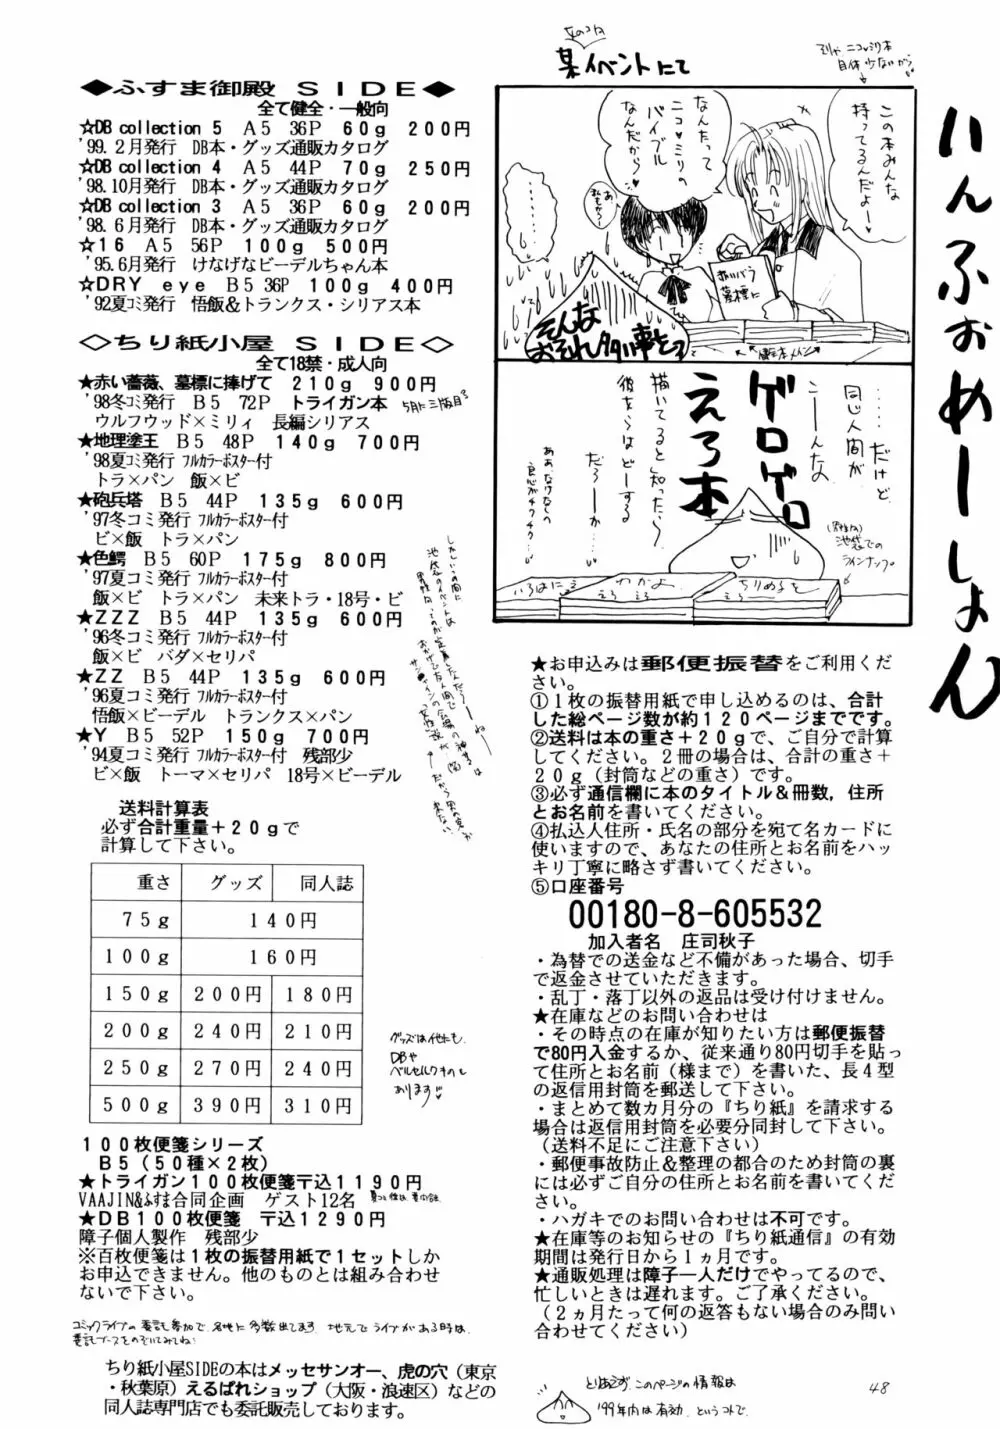 いんふぉめーしょん
某イベントにて
この本みんな
持ってるんだよー♥
なんたって
ニコ♥ミリの
バイブル
なんだから♥
赤いバラ
墓標に
そんな
おそれ多い事をっ
……だけど
同じ人間が
こーんな
ゲロゲロ
えろ本
描いてると知ったら
彼女らはどーする
だろーか…
池袋での
ラインナップ。
◆ふすま御殿 SIDE◆
全て健全・一般向
☆DB collection 5 A5 36P 60g 200円
'99.2月発行 DB本・グッズ通販カタログ
☆DB collection 4 A5 44P 70g 250円
'98.10月発行 DB本・グッズ通販カタログ
☆DB collection 3 A5 36P 60g 200円
'98.6月発行 DB本・グッズ通販カタログ
☆16 A5 56P 100g 500円
'95.6月発行 けなげなビーデルちゃん本
☆DRY eye B5 36P 100g 400円
'92夏コミ発行 悟飯&トランクス・シリアス本
◇ちり紙小屋 SIDE◇
全て18禁・成人向
★赤い薔薇、墓標に捧げて 210g 900円
'98冬コミ発行 B5 72P トライガン本 5月に三版目。
ウルフウッド×ミリィ 長編シリアス
★地理塗王 B5 48P 140g 700円
'98夏コミ発行 フルカラーポスター付
トラ×パン 飯×ビ
★砲兵塔 B5 44P 135g 600円
'97冬コミ発行 フルカラーポスター付
ビ×飯 トラ×パン
★色鰐 B5 60P 175g 800円
'97夏コミ発行 フルカラーポスター付
飯×ビ トラ×パン 未来トラ・18号・ビ
★ZZZ B5 44P 135g 600円
'96冬コミ発行 フルカラーポスター付
飯×ビ バダ×セリパ
★ZZ B5 44P 135g 600円
'96夏コミ発行 フルカラーポスター付
悟飯×ビーデル トランクス×パン
★Y B5 52P 150g 700円
'94夏コミ発行 フルカラーポスター付 残部少
ビ×飯 トーマ×セリパ 18号×ビーデル
送料計算表
必ず合計重量+20gで
計算して下さい。
重さ グッズ 同人誌
75g 140円
100g 160円
150g 200円 180円
200g 240円 210円
250g 270円 240円
500g 390円 310円
グッズは他にも
DBや
ベルセルクのも
あります♥
100枚便箋シリーズ
B5(50種×2枚)
★トライガン100枚便箋〒込1190円
VAAJIN&ふすま合同企画 ゲスト12名
★DB100枚便箋 〒込1290円
障子個人製作 残部少
※百枚便箋は1枚の振替用紙で1セットしか
お申込できません。他のものとは組み合わせ
ないで下さい。
コミックライブの委託参加で、各地に多数出てます。地元でライブがある時は、
委託ブースをのぞいてみてね。
ちり紙小屋SIDEの本はメッセサンオー、虎の穴(東京
・秋葉原)えるぱれショップ(大阪・浪速区)などの
同人誌専門店でも委託販売しております。
★お申込みは郵便振替をご利用くだ
さい。
①1枚の振替用紙で申し込めるのは、合計
した総ページ数が約120ページまでです。
②送料は本の重さ+20gで、ご自分で計算
してください。2冊の場合は、合計の重さ+
20g(封筒などの重さ)です。
③必ず通信欄に本のタイトル&冊数,住所
とお名前を書いてください。
④払込人住所・氏名の部分を宛て名カードに
使いますので、あなたの住所とお名前をハッ
キリ丁寧に略さず書いてください。
⑤口座番号
00180-8-605532
加入者名 庄司秋子
・為替での送金など不備があった場合、切手
で返金させていただきます。
・乱丁・落丁以外の返品は受け付けません。
★在庫などのお問い合わせは
・その時点の在庫が知りたい方は郵便振替
で80円入金するか、従来通り80円切手を貼っ
て住所とお名前(様まで)を書いた、長4型
の返信用封筒を郵送して下さい。
・まとめて数ヵ月分の『ちり紙』を請求する
場合は返信用封筒を必要分同封して下さい。
(送料不足にご注意下さい)
・郵便事故防止&整理の都合のため封筒の裏
には必ずご自分の住所とお名前を書いてくだ
さい。
・ハガキでのお問い合わせは不可です。
★在庫等のお知らせの『ちり紙通信』の有効
期間は発行日から1ヵ月です。
★通販処理は障子一人だけでやってるので、
忙しいときは遅れます。ご了承ください。
(2ヵ月たって何の返答もない場合のみ問い
合わせてください)
とりあえず、このページの情報は
'99年内は有効、というコトで。
48